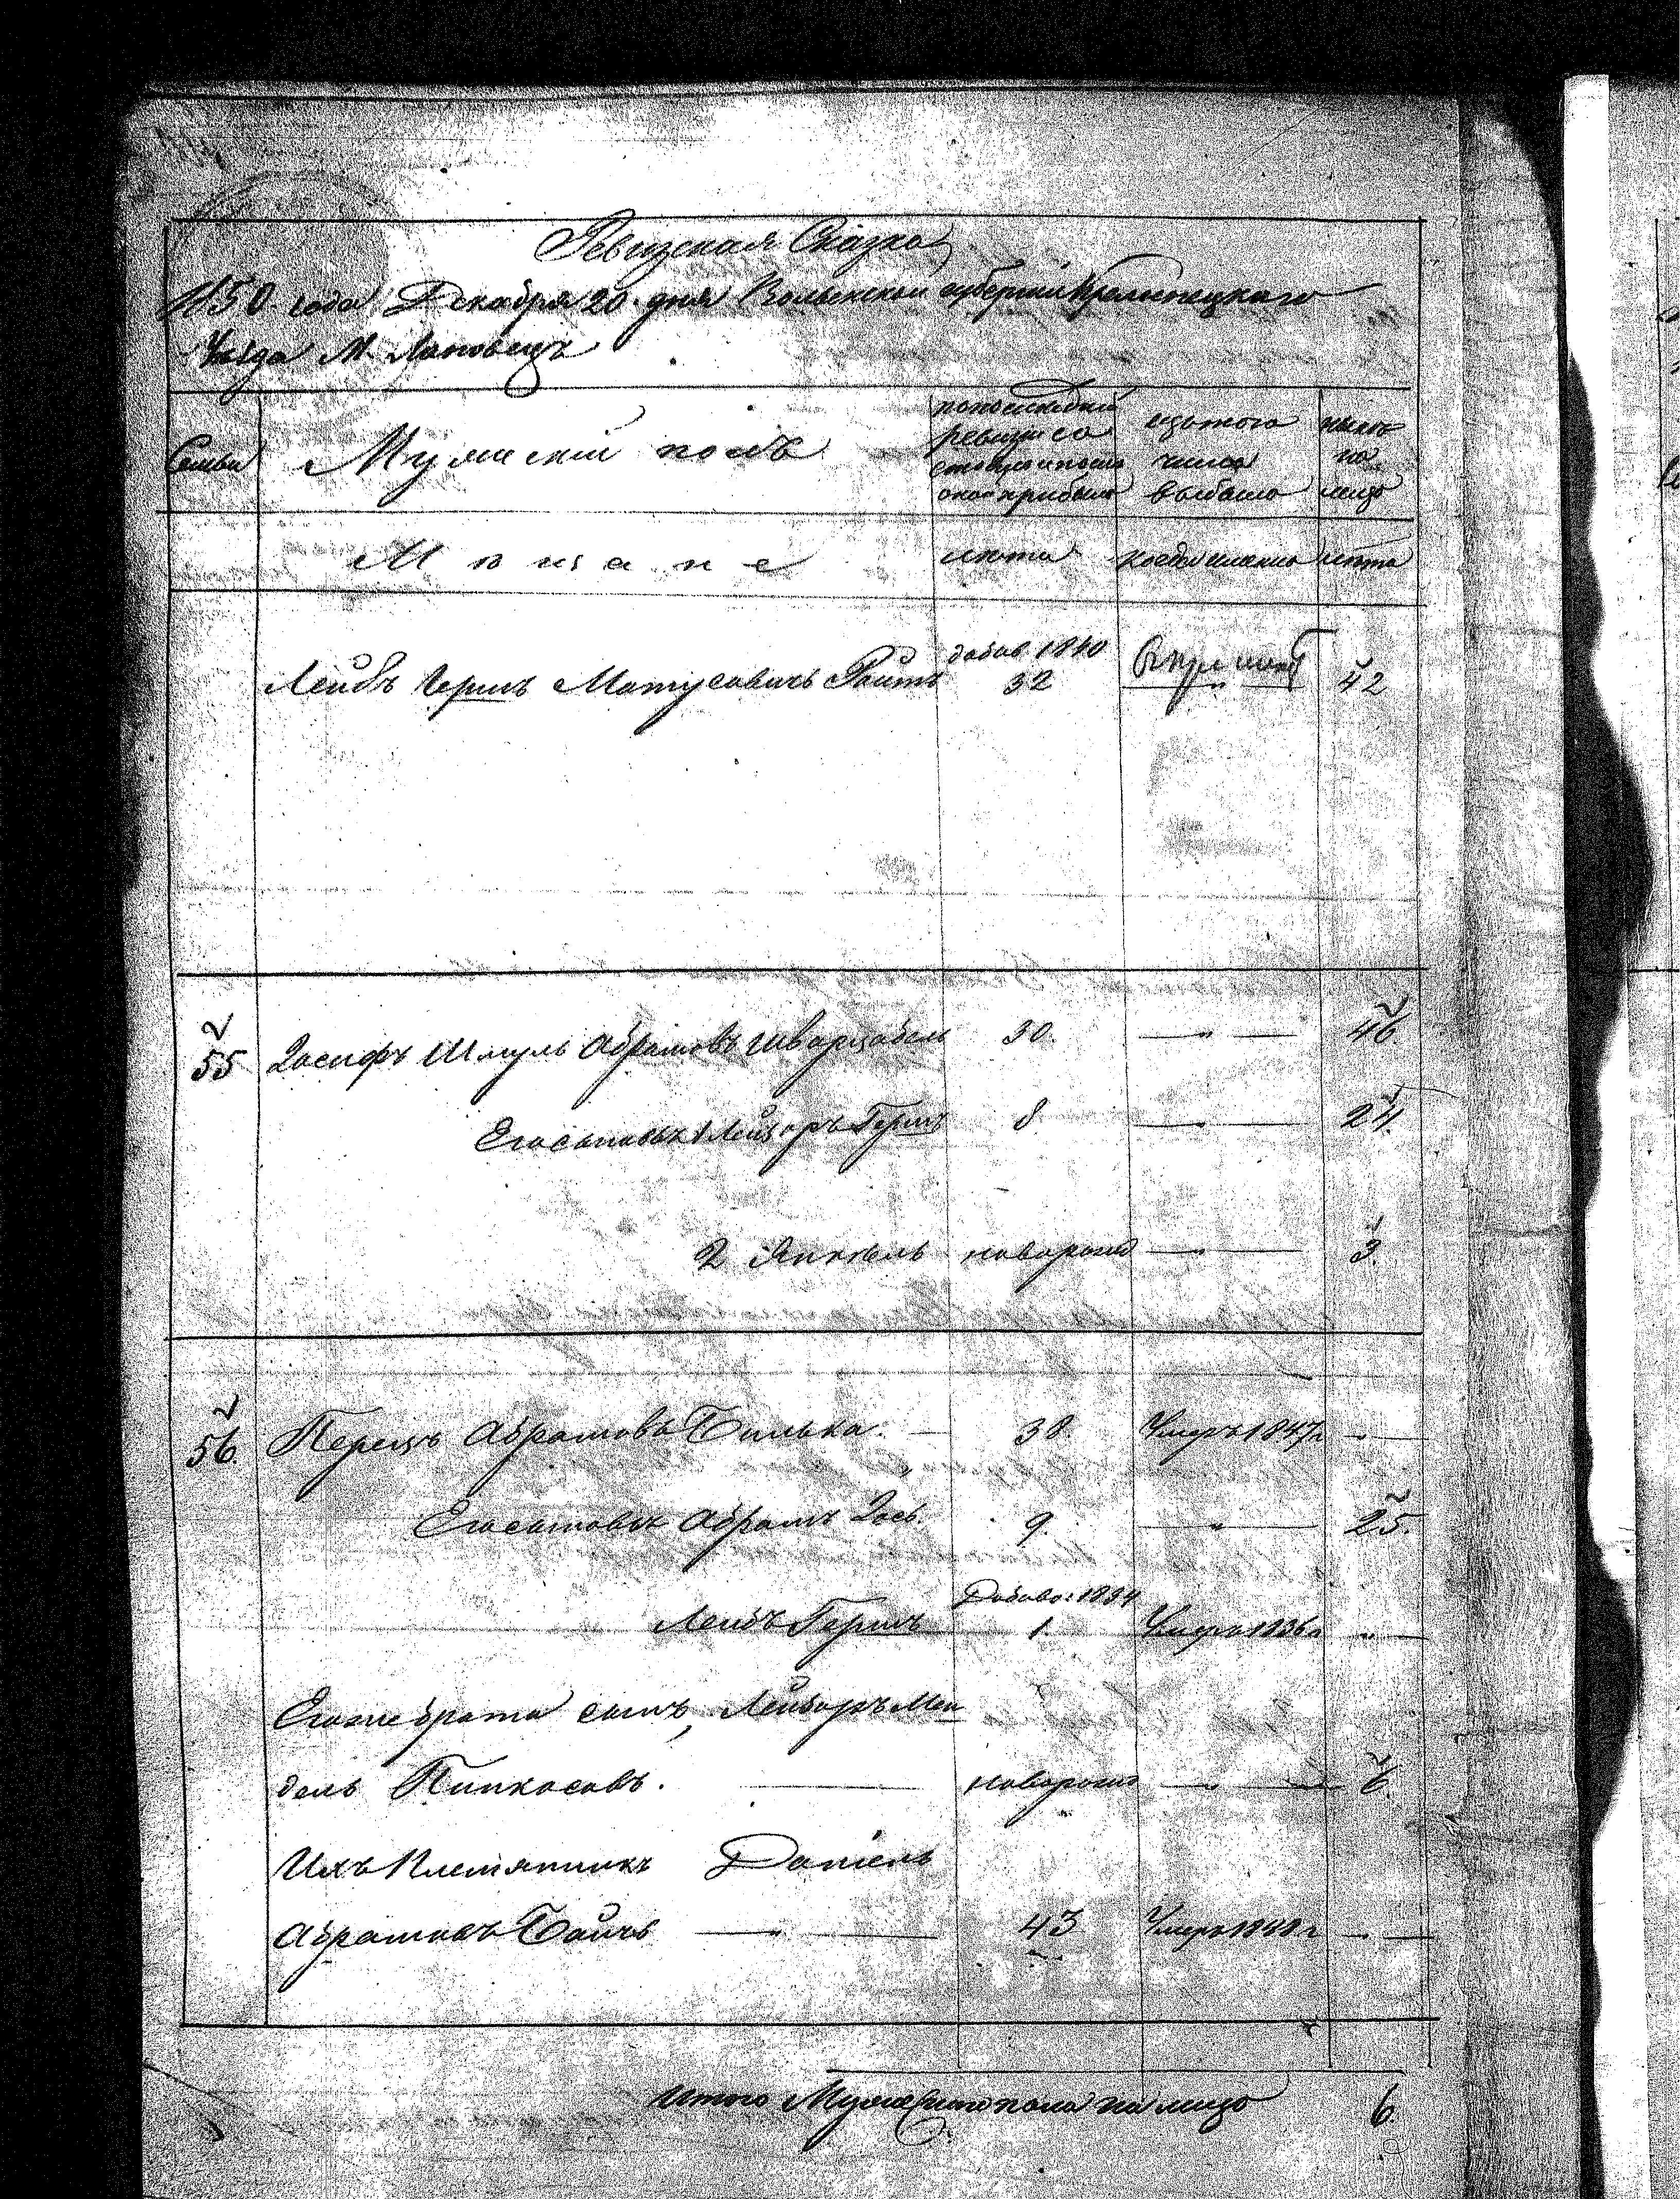 Ревизская Сказка
1850 года Декабря 20 дня Волынской губернии Кременецкаго
Уезда М. Лановецъ
Семьи
Мужескій полъ
по последней
ревизіи со
стояло и после
оной прибыло
изъ того
числа
выбыло
ныне
на
лицо
Мещане
лета
когда именно
лета
Лейбъ Гершъ Матусовичъ Ройтъ
добав. 1840
32
42
55
Іосифъ Шмуль Абрамовъ Шварцабель
30.
46
Его сыновья 1 Лейзоръ Гершъ
8
24.
2 Янкель
новорожд
3.
56.
Перецъ Абрамовъ Билька.
38
Умеръ 1847 г
Его сыновья Абрамъ Іось.
9.
25.
Лейбъ Гершъ
Добаво: 1834
1.
Умеръ 1836 г
Его же брата сынъ, Лейзоръ Мен
дель Пинкасовъ.
новорожд
6.
Ихъ Племянникъ Даніель
Абрамовъ Байчъ
43
Умеръ 1848 г
Итого Мужескаго пола на лицо
6.